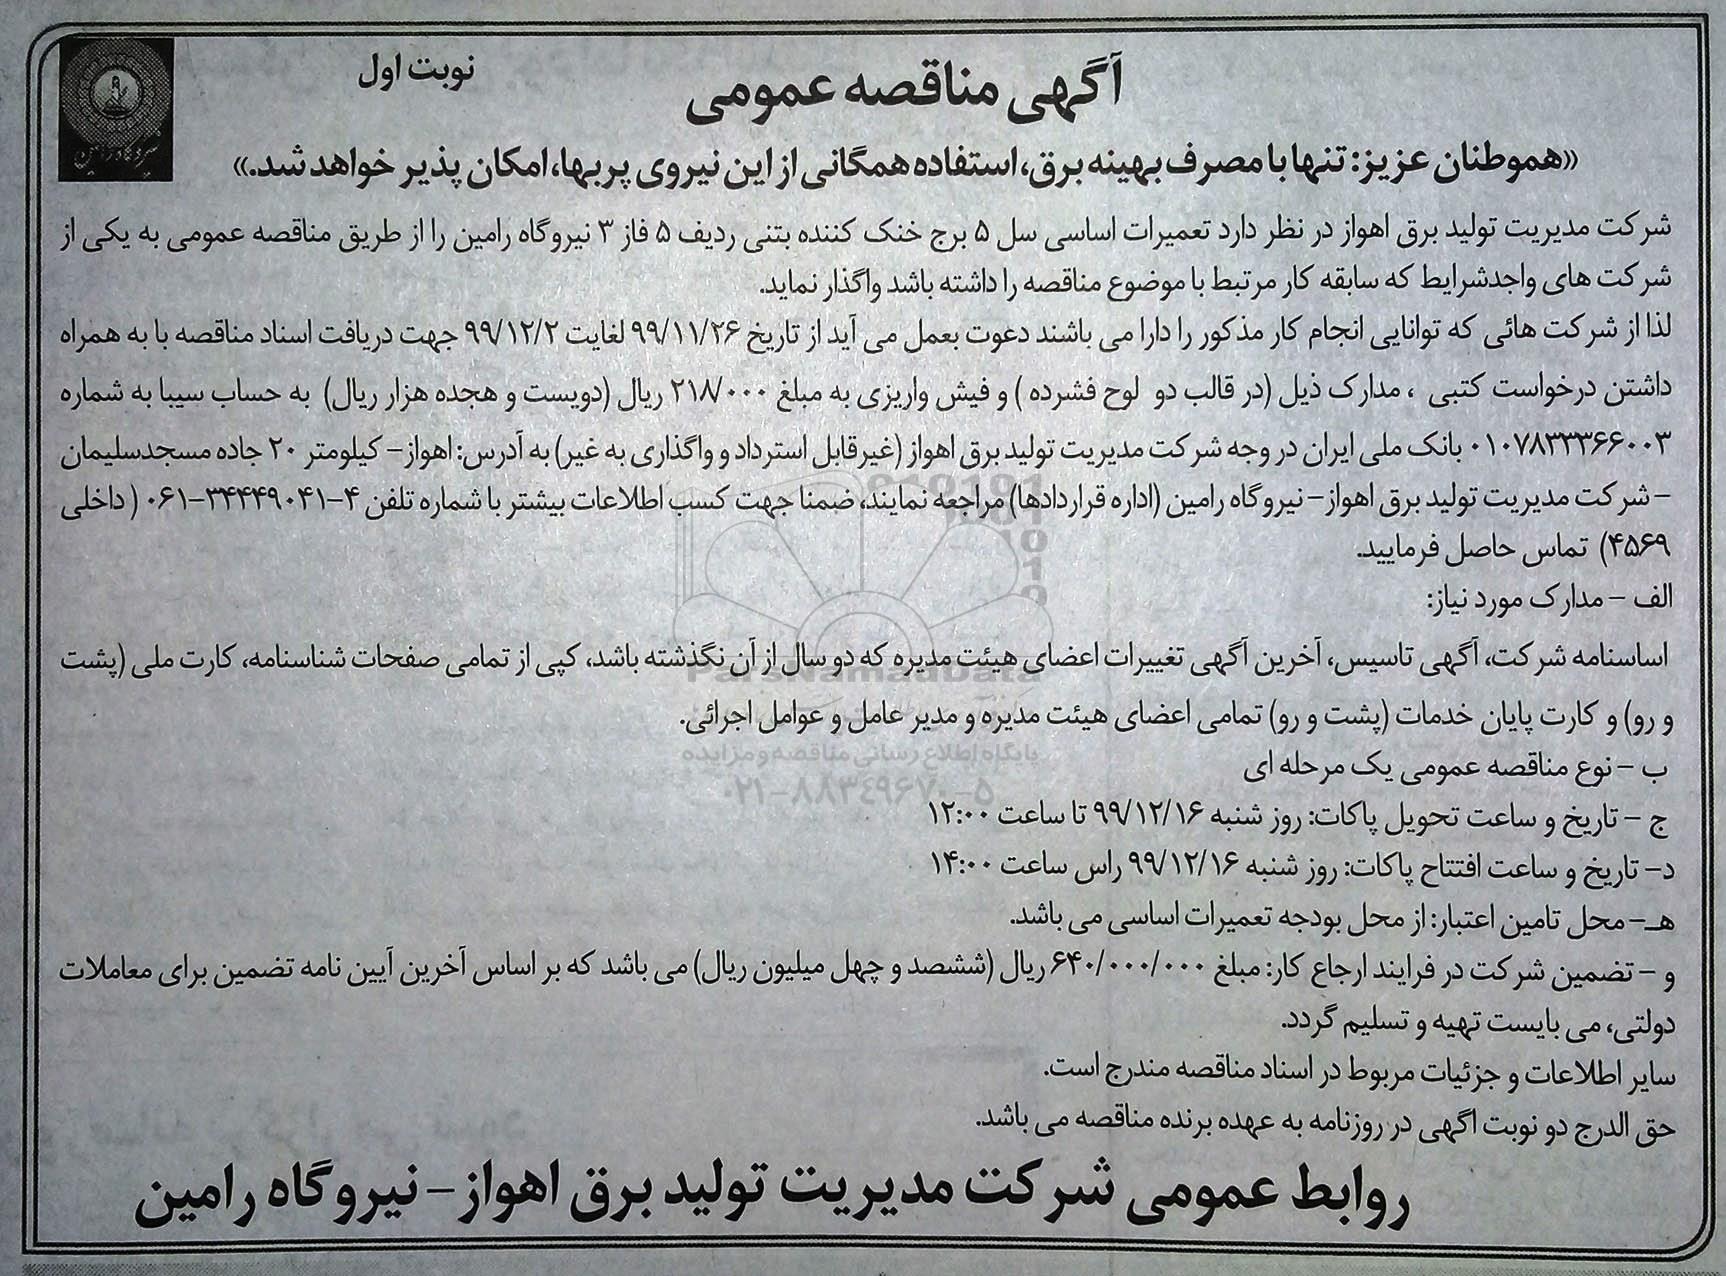 آگهی مناقصه عمومی
نوبت اول
«هموطنان عزیز: تنها با مصرف بهینه برق، استفاده همگانی از این نیروی پربها، امکان پذیر خواهد شد.»
شرکت مدیریت تولید برق اهواز در نظر دارد تعمیرات اساسی سل ۵ برج خنک کننده بتنی ردیف ۵ فاز ۳ نیروگاه رامین را از طریق مناقصه عمومی به یکی از
شرکت های واجدشرایط که سابقه کار مرتبط با موضوع مناقصه را داشته باشد واگذار نماید.
لذا از شرکت هائی که توانایی انجام کار مذکور را دارا می باشند دعوت بعمل می آید از تاریخ ۹۹/۱۱/۲۶ لغایت ۹۹/۱۲/۲ جهت دریافت اسناد مناقصه با به همراه
داشتن درخواست کتبی ، مدارک ذیل (در قالب دو لوح فشرده ) و فیش واریزی به مبلغ ۲۱۸/۰۰۰ ریال (دویست و هجده هزار ریال) به حساب سیبا به شماره
۰۱۰۷۸۳۳۳۶۶۰۰۳ بانک ملی ایران در وجه شرکت مدیریت تولید برق اهواز (غیرقابل استرداد و واگذاری به غیر) به آدرس: اهواز- کیلومتر ۲۰ جاده مسجدسلیمان
- شرکت مدیریت تولید برق اهواز- نیروگاه رامین (اداره قراردادها) مراجعه نمایند، ضمنا جهت کسب اطلاعات بیشتر با شماره تلفن ۴-۳۴۴۴۹۰۴۱-۰۶۱ ( داخلی
۴۵۶۹) تماس حاصل فرمایید.
الف - مدارک مورد نیاز:
اساسنامه شرکت، آگهی تاسیس، آخرین آگهی تغییرات اعضای هیئت مدیره که دو سال از آن نگذشته باشد، کپی از تمامی صفحات شناسنامه، کارت ملی (پشت
و رو) و کارت پایان خدمات (پشت و رو) تمامی اعضای هیئت مدیره و مدیر عامل و عوامل اجرائی.
ب - نوع مناقصه عمومی یک مرحله ای
ج - تاریخ و ساعت تحویل پاکات: روز شنبه ۹۹/۱۲/۱۶ تا ساعت ۱۲:۰۰
د- تاریخ و ساعت افتتاح پاکات: روز شنبه ۹۹/۱۲/۱۶ راس ساعت ۱۴:۰۰
هـ- محل تامین اعتبار: از محل بودجه تعمیرات اساسی می باشد.
و - تضمین شرکت در فرایند ارجاع کار: مبلغ ۶۴۰/۰۰۰/۰۰۰ ریال (ششصد و چهل میلیون ریال) می باشد که بر اساس آخرین آیین نامه تضمین برای معاملات
دولتی، می بایست تهیه و تسلیم گردد.
سایر اطلاعات و جزئیات مربوط در اسناد مناقصه مندرج است.
حق الدرج دو نوبت اگهی در روزنامه به عهده برنده مناقصه می باشد.
روابط عمومی شرکت مدیریت تولید برق اهواز- نیروگاه رامین
ParsNamadData
پایگاه اطلاع رسانی مناقصه و مزایده
۰۲۱-۸۸۳۴۹۶۷۰-۵